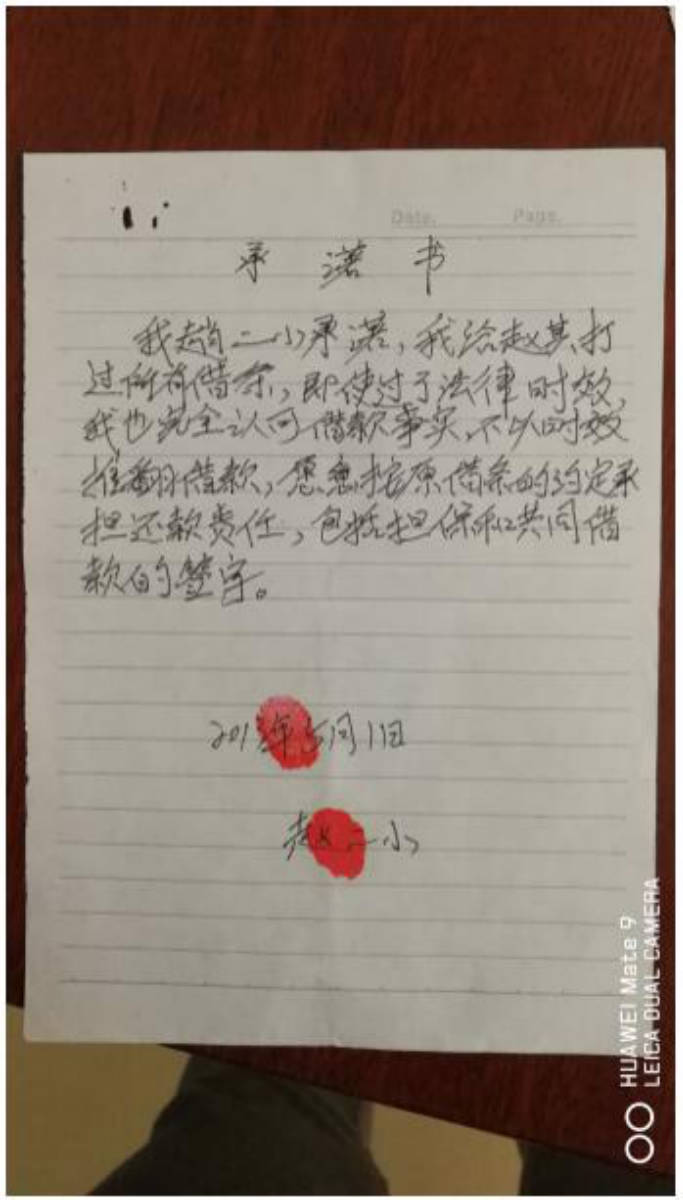 Date. Page.
承 诺 书
我趙二小承诺，我给赵其打
过所有借条，即使过了法律时效，
我也完全认可借款事实，不以时效
推翻借款，愿意按原借条的约定承
担还款责任，包括担保和共同借
款的签字。
201 年5月1日
赵二小
HUAWEI Mate 9
LEICA DUAL CAMERA